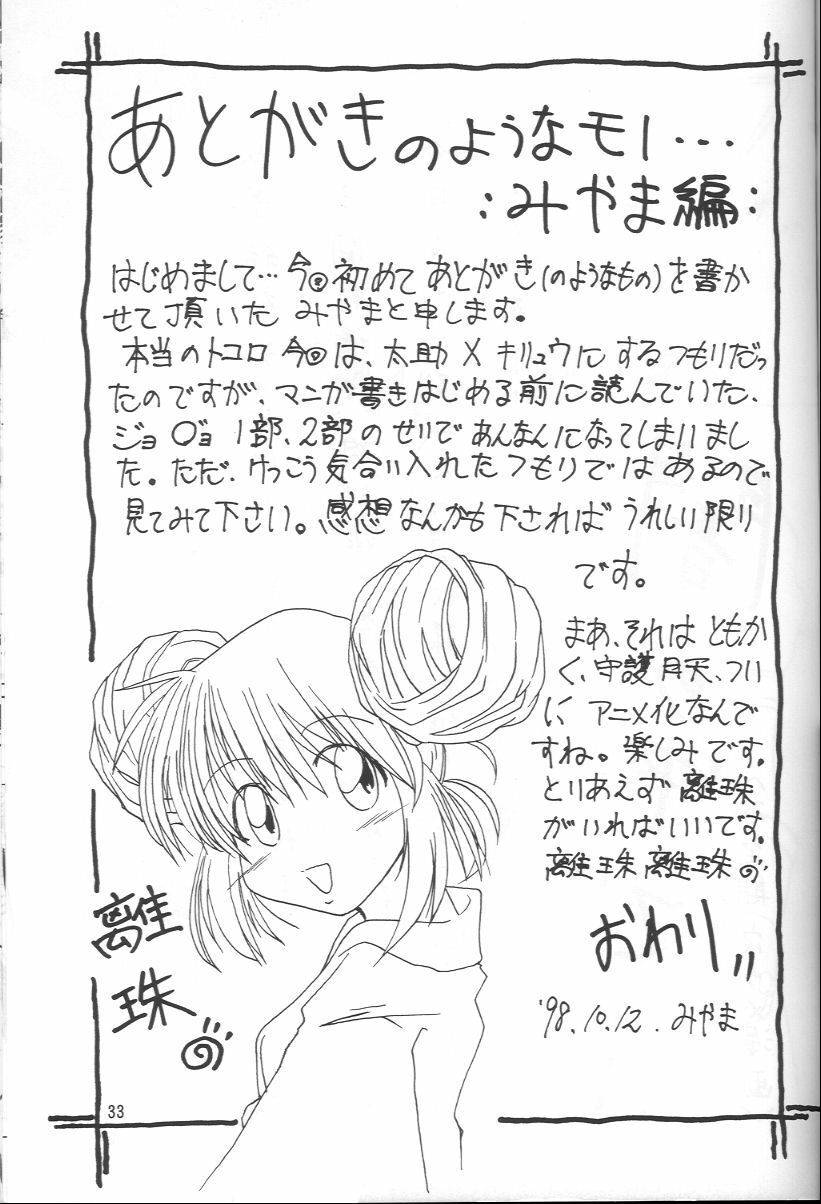 あとがきのようなモノ…
:みやま編:
はじめまして…今回初めてあとがき(のようなもの)を書か
せて頂いたみやまと申します。
本当のトコロ今回は、太助×キリュウにするつもりだっ
たのですが、マニが書きはじめる前に読んでいた、
ジョ○ョ1部、2部のせいであんなんになってしまいまし
た。ただ、けっこう気合い入れたつもりではあるので
見てみて下さい。感想なんかも下さればうれしい限り
です。
まあ、それはともか
く、守護月天、つい
に、アニメ化なんで
すね。楽しみです。
とりあえず離珠
がいればいいです。
離珠離珠
おわり〃
'98.10.12.みやま
離
珠
33